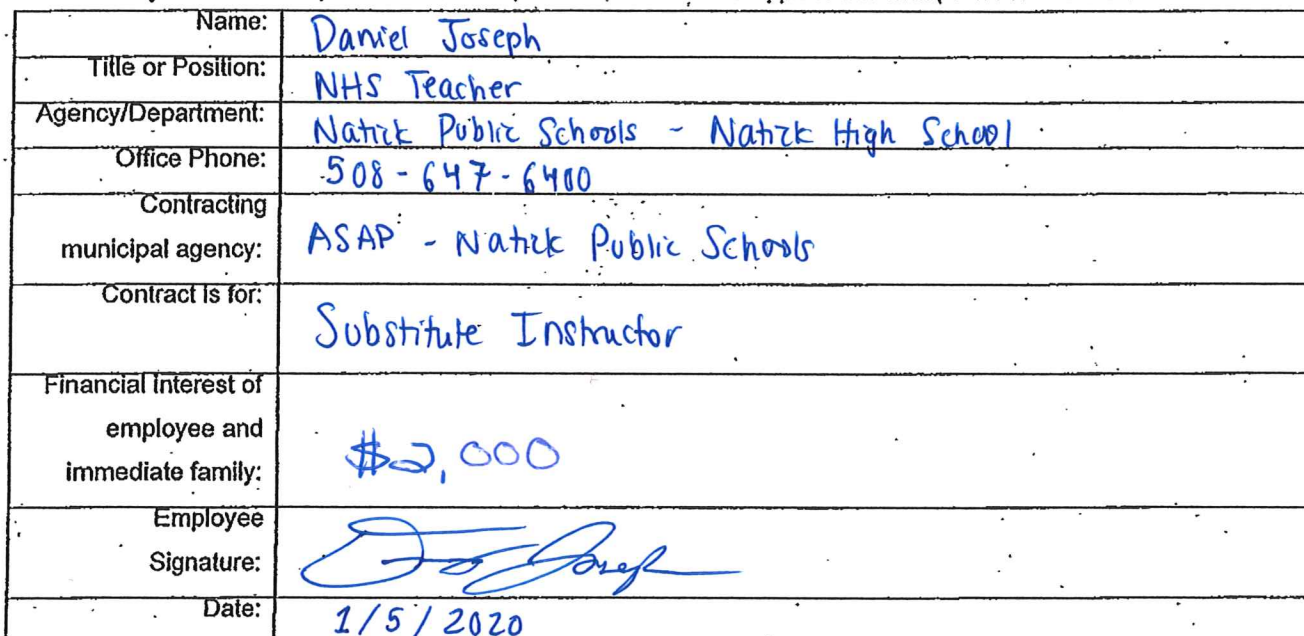 Name: Daniel Joseph
Title or Position: NHS Teacher
Agency/Department: Natick Public Schools - Natick High School
Office Phone: 508-647-6400
Contracting
municipal agency: ASAP - Natick Public Schools
Contract is for: Substitute Instructor
Financial interest of
employee and
immediate family: $2,000
Employee
Signature: Joseph
Date: 1/5/2020